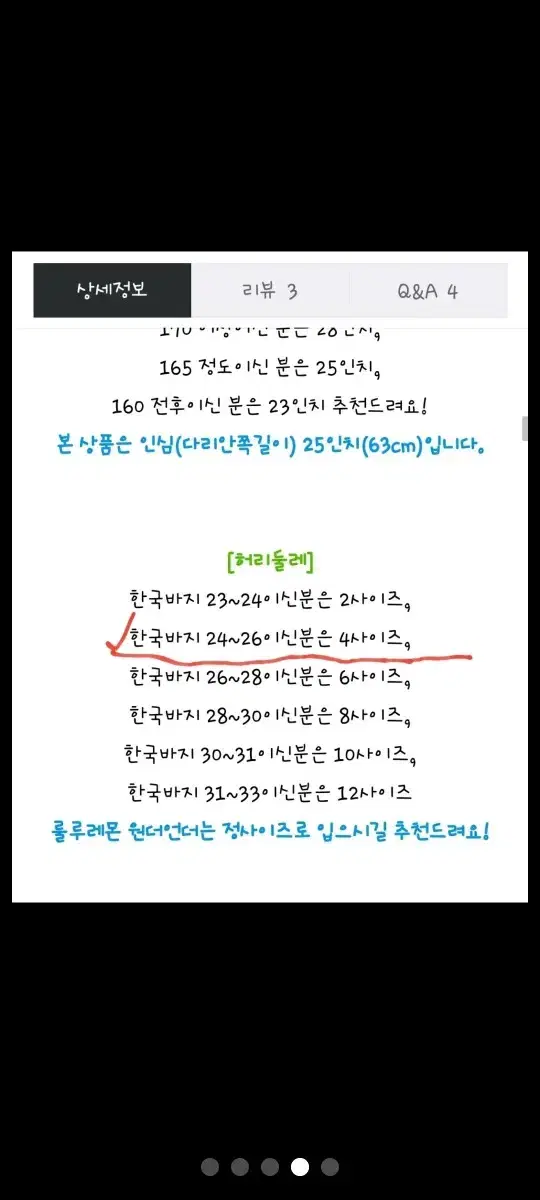 상세정보
리뷰 3
Q&A 4
165 정도이신 분은 25인치,
160 전후이신 분은 23인치 추천드려요!
본 상품은 인심(다리안쪽길이) 25인치(63cm)입니다.
[허리둘레]
한국바지 23~24이신분은 2사이즈,
한국바지 24~26이신분은 4사이즈,
한국바지 26~28이신분은 6사이즈,
한국바지 28~30이신분은 8사이즈,
한국바지 30~31이신분은 10사이즈,
한국바지 31~33이신분은 12사이즈
룰루레몬 원더언더는 정사이즈로 입으시길 추천드려요!